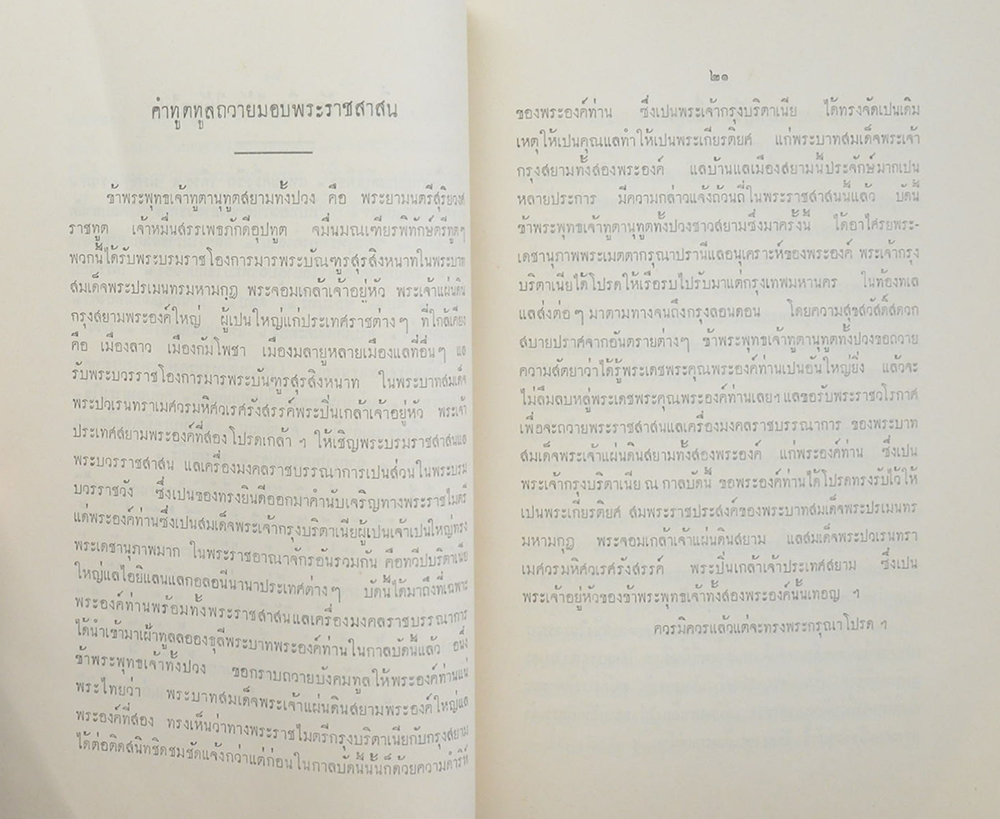 คำทูตทูลถวายมอบพระราชสาสน
ข้าพระพุทธเจ้าทูตานุทูตสยามทั้งปวง คือ พระยามนตรีสุริยวงศ
ราชทูต เจ้าหมื่นสรรเพธภักดีอุปทูต จมื่นมณเฑียรพิทักษ์ตรีทูตๆ
พวกนี้ได้รับพระบรมราชโองการมารพระบัณฑูรสุรสิงหนาทในพระบาท
สมเด็จพระปรเมนทรมหามกุฎ พระจอมเกล้าเจ้าอยู่หัว พระเจ้าแผ่นดิน
กรุงสยามพระองค์ใหญ่ ผู้เปนใหญ่แก่ประเทศราชต่างๆ ที่ใกล้เคียง
คือ เมืองลาว เมืองกัมโพชา เมืองมลายูหลายเมืองแลที่อื่นๆ แล
รับพระบวรราชโองการมารพระบันฑูรสุรสิงหนาท ในพระบาทสมเด็จ
พระปวเรนทราเมศวรมหิศวเรศรังสรรค์พระปิ่นเกล้าเจ้าอยู่หัว พระเจ้า
ประเทศสยามพระองค์ที่สอง โปรดเกล้า ฯ ให้เชิญพระบรมราชสาสนแล
พระบวรราชสาสน แลเครื่องมงคลราชบรรณาการเปนส่วนในพระบรม
บวรราชวัง ซึ่งเปนของทรงยินดีออกมาคำนับเจริญทางพระราชไมตรี
แด่พระองค์ท่านซึ่งเปนสมเด็จพระเจ้ากรุงบริตาเนียผู้เปนเจ้าเปนใหญ่ทรง
พระเดชานุภาพมาก ในพระราชอาณาจักรอันรวมกัน คือทวีปบริตาเนีย
ใหญ่แลไอยิแลนแลกอลอนีนานาประเทศต่างๆ บัดนี้ได้มาถึงที่เฉพาะ
พระองค์ท่านพร้อมทั้งพระราชสาสนแลเครื่องมงคลราชบรรณาการ
ได้นำเข้ามาเฝ้าทูลลอองธุลีพระบาทพระองค์ท่านในกาลบัดนี้แล้ว อนึ่ง
ข้าพระพุทธเจ้าทั้งปวง ขอกราบถวายบังคมทูลให้พระองค์ท่านแน่
พระไทยว่า พระบาทสมเด็จพระเจ้าแผ่นดินสยามพระองค์ใหญ่แล
พระองค์ที่สอง ทรงเห็นว่าทางพระราชไมตรีกรุงบริตาเนียกับกรุงสยาม
ได้ต่อติดสนิทชิดชมชัดแจ้งกว่าแต่ก่อนในกาลบัดนี้นั้นก็ด้วยความดำริห์
๒๑
ของพระองค์ท่าน ซึ่งเปนพระเจ้ากรุงบริตาเนีย ได้ทรงจัดเปนเดิม
เหตุให้เปนคุณแลทำให้เปนพระเกียรติยศ แก่พระบาทสมเด็จพระเจ้า
กรุงสยามทั้งสองพระองค์ แลบ้านแลเมืองสยามนี้ประจักษ์มากเปน
หลายประการ มีความกล่าวแจ้งถ้วนถี่ในพระราชสาสนนั้นแล้ว บัดนี้
ข้าพระพุทธเจ้าทูตานุทูตทั้งปวงชาวสยามซึ่งมาครั้งนี้ ได้อาไศรยพระ-
เดชานุภาพพระเมตตากรุณาปรานีแลอนุเคราะห์ของพระองค์ พระเจ้ากรุง
บริตาเนียได้โปรดให้เรือรบไปรับมาแต่กรุงเทพมหานคร ในท้องทเล
แลส่งต่อๆ มาตามทางจนถึงกรุงลอนดอน โดยความสุขสวัสดิ์สดวก
สบายปราศจากอันตรายต่างๆ ข้าพระพุทธเจ้าทูตานุทูตทั้งปวงขอถวาย
ความสัตยาว่าได้รู้พระเดชพระคุณพระองค์ท่านเปนอันใหญ่ยิ่ง แล้วจะ
ไม่ลืมลบหลู่พระเดชพระคุณพระองค์ท่านเลยฯ แลขอรับพระราชวโรกาศ
เพื่อจะถวายพระราชสาสนแลเครื่องมงคลราชบรรณาการ ของพระบาท
สมเด็จพระเจ้าแผ่นดินสยามทั้งสองพระองค์ แก่พระองค์ท่าน ซึ่งเปน
พระเจ้ากรุงบริตาเนีย ณ กาลบัดนี้ ขอพระองค์ท่านได้โปรดทรงรับไว้ให้
เปนพระเกียรติยศ สมพระราชประสงค์ของพระบาทสมเด็จพระปรเมนทร
มหามกุฎ พระจอมเกล้าเจ้าแผ่นดินสยาม แลสมเด็จพระปวเรนทรา
เมศวรมหิศวเรศรังสรรค์ พระปิ่นเกล้าเจ้าประเทศสยาม ซึ่งเปน
พระเจ้าอยู่หัวของข้าพระพุทธเจ้าทั้งสองพระองค์นั้นเทอญ ฯ
ควรมิควรแล้วแต่จะทรงพระกรุณาโปรด ฯ